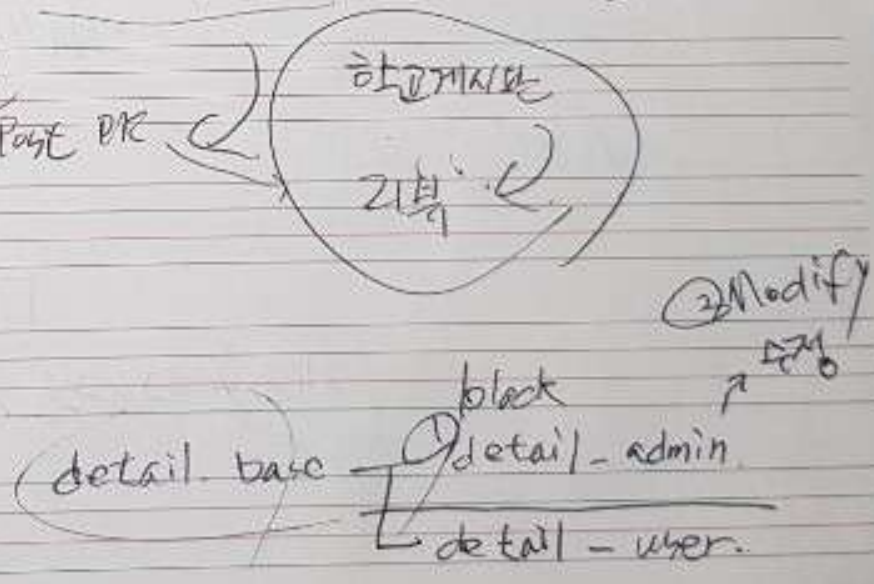 학교게시판
Post PK
리뷰
② Modify
수정
block
detail_base ① detail_admin
detail_user.